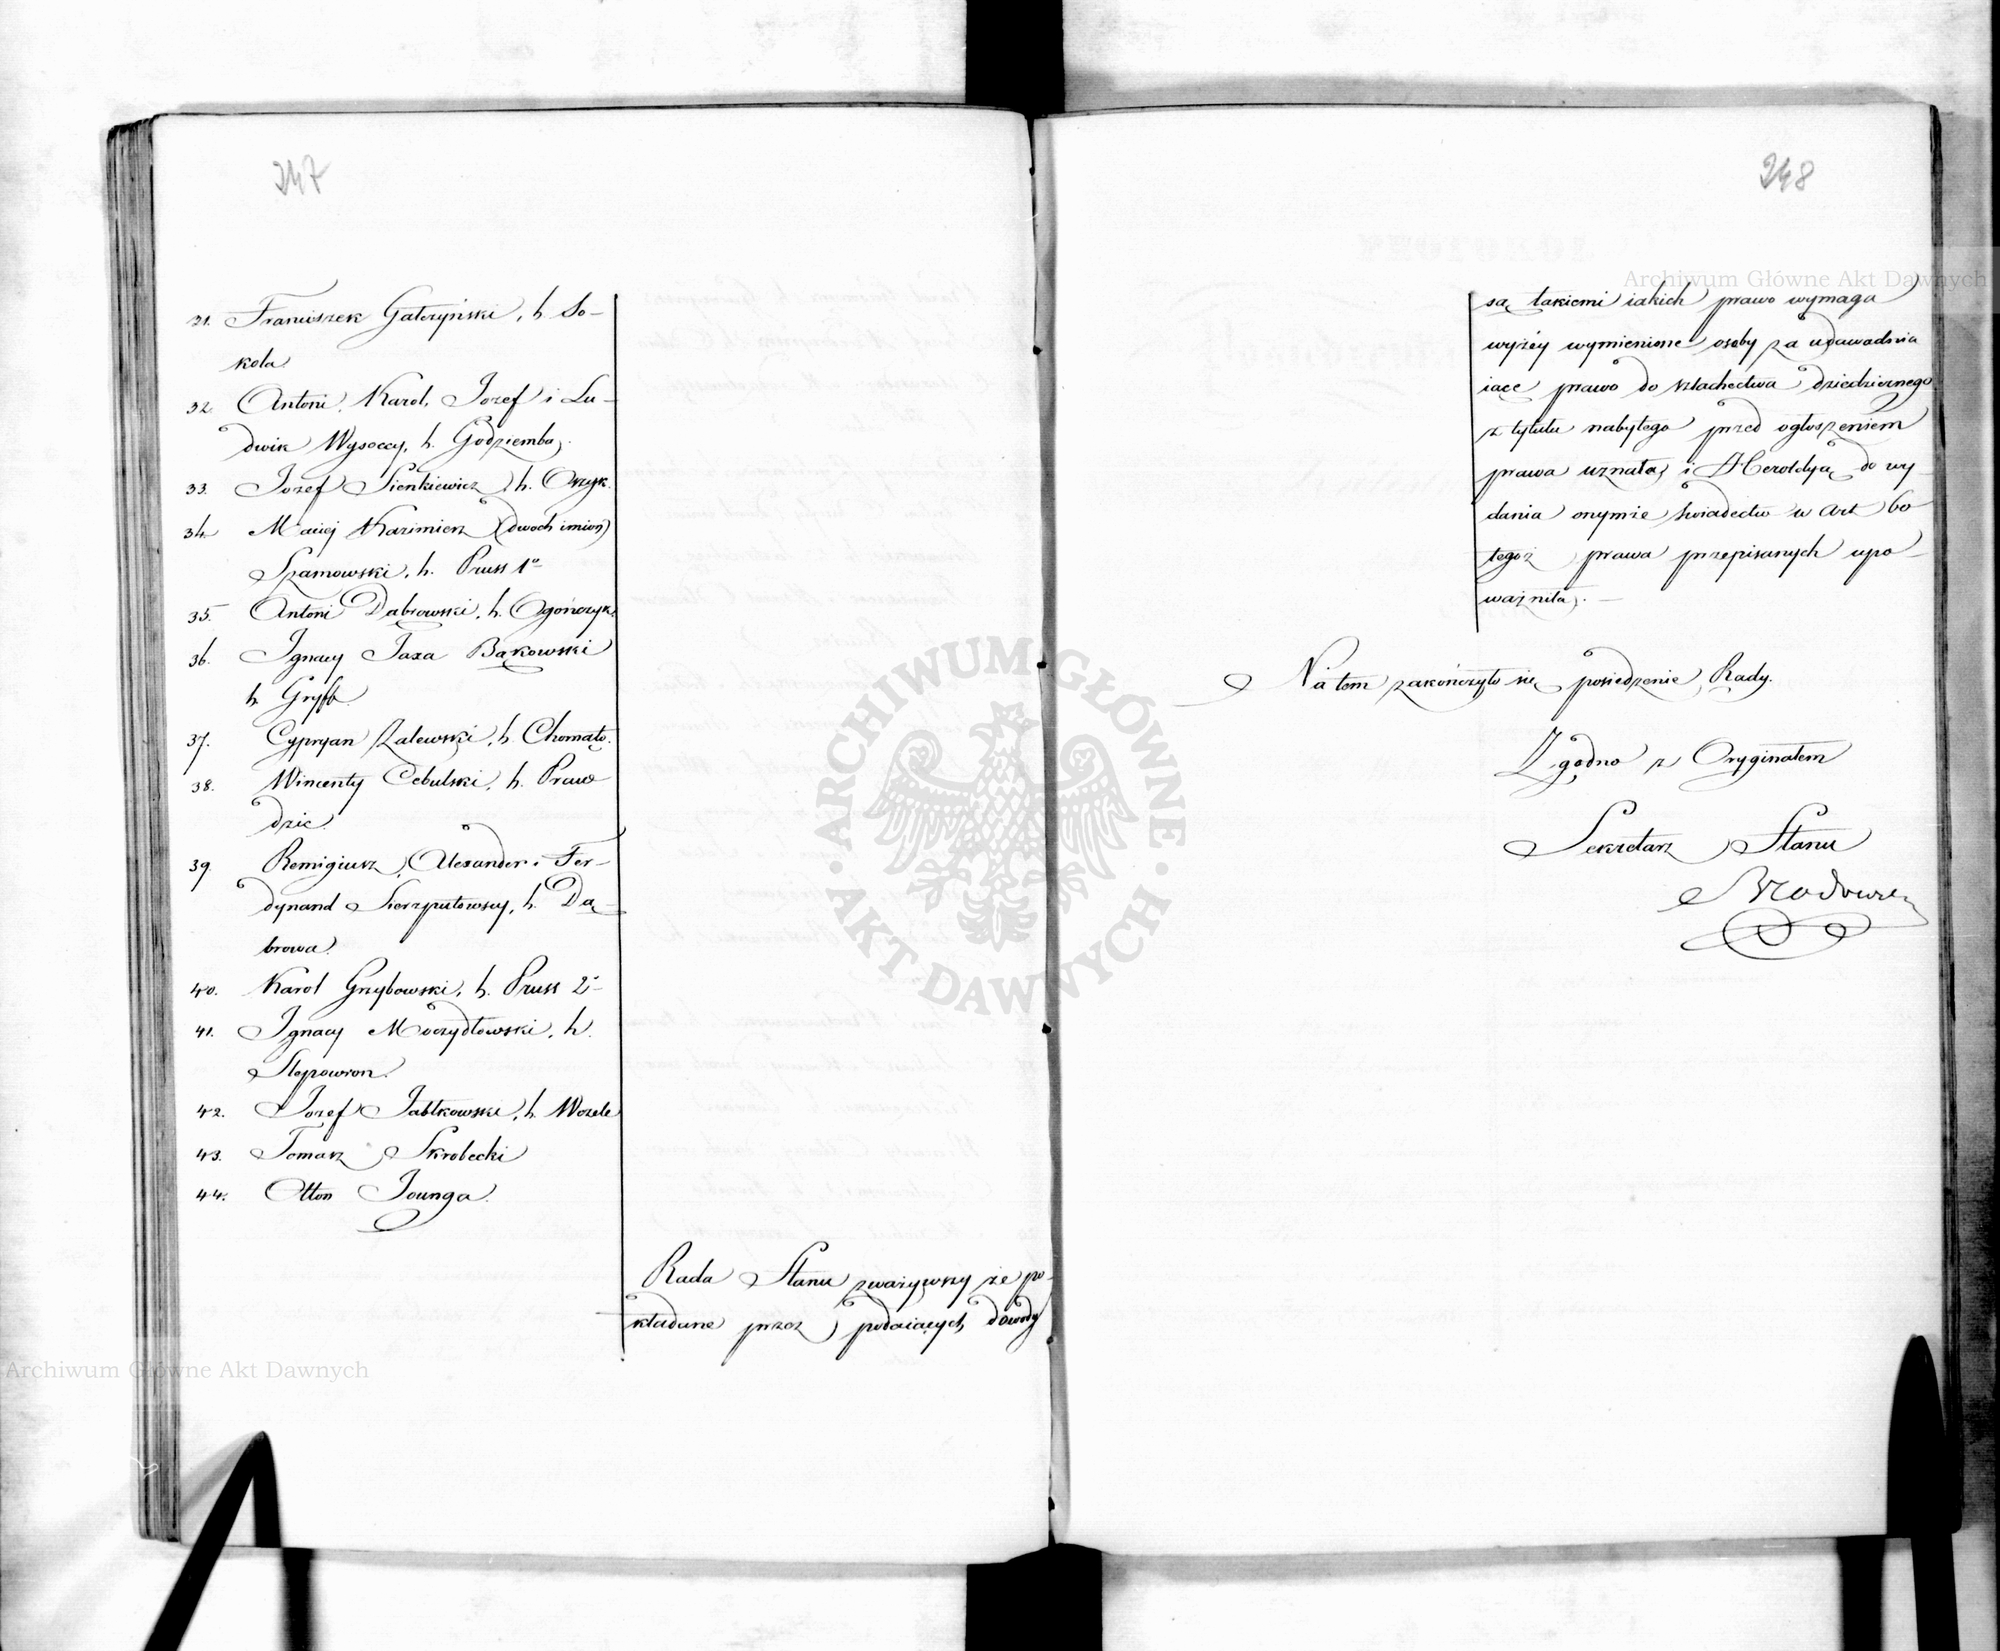 247
31. Franciszek Gałczyński, h. So-
kola
32. Antoni, Karol, Jozef i Lu-
dwik Wysoccy, h. Godziemba.
33. Jozef Sienkiewicz, h. Oszyk.
34. Maciej Kazimierz (dwoch imion)
Szamowski, h. Pruss 1o
35. Antoni Dąbrowski, h. Ogończyk.
36. Ignacy Jaxa Bąkowski
h Gryff
37. Cypryan Zalewski, h. Chomąto.
38. Wincenty Cebulski, h. Praw
dzic.
39. Remigiusz, Alexander i Fer-
dynand Sierzputowscy, h. Dą-
browa.
40. Karol Grzybowski, h. Pruss 2o
41. Ignacy Moczydłowski, h.
Slepowron.
42. Jozef Jabłkowski, h. Wczele
43. Tomasz Skrobecki
44. Otton Jounga.
Rada Stanu zważywszy że po-
kładane przez podaiących dowody
248
są takiemi iakich prawo wymaga
wyżéy wymienione osoby za udawadnia
iące prawo do szlachectwa dziedzicznego
z tytułu nabytego przed ogłoszeniem
prawa uznała, i Heroldyą do wy-
dania onymże świadectw w Art 60
tegoż prawa przepisanych upo-
ważniła. —
Na tem zakończyło się posiedzenie Rady.
Zgodno z Oryginałem
Sekretarz Stanu
Archiwum Główne Akt Dawnych
ARCHIWUM GŁÓWNE
AKT DAWNYCH
Archiwum Główne Akt Dawnych